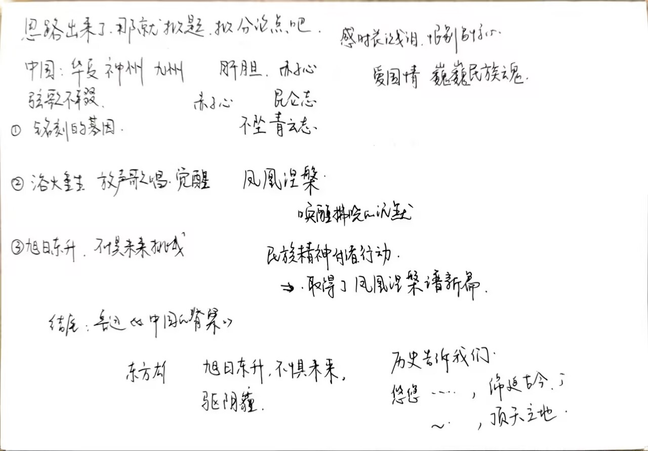 思路出来了,那就拟题、拟分论点吧.
感时花溅泪,恨别鸟惊心.
中国:华夏 神州 九州 肝胆、赤子心
爱国情 巍巍民族魂.
弦歌不辍. 赤子心 昆仑志
① 铭刻的基因. 不坠青云志.
② 浴火重生 放声歌唱·觉醒 凤凰涅槃.
唤醒
③旭日东升,不惧未来挑战 民族精神付诸行动.
→ 取得了凤凰涅槃谱新篇.
结尾:《中国的脊梁》
东方 旭日东升,不惧未来,
驱阴霾.
历史告诉我们.
悠悠 ……,绵延古今;
~,顶天立地.